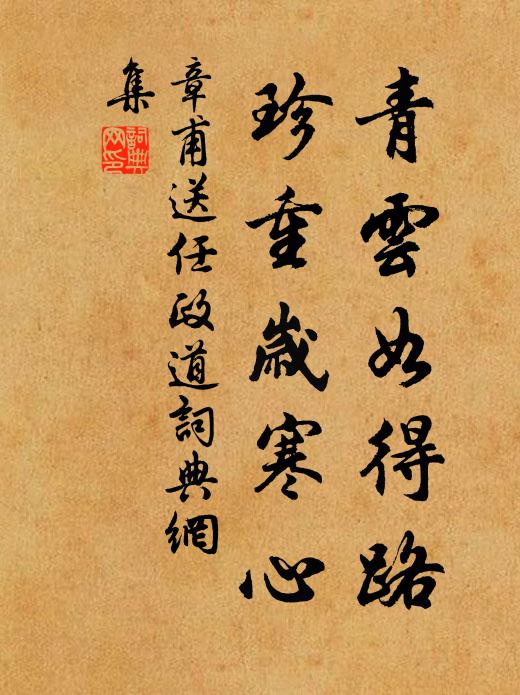 青雲如得路
珍重歲寒心
章甫送任政道詞典網
集
詞典網印